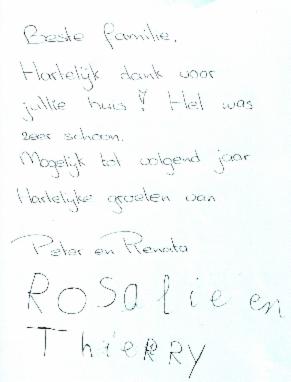 Beste familie.
Hartelijk dank voor
jullie huis! Het was
zeer schoon.
Mogelijk tot volgend jaar
Hartelijke groeten van
Peter en Renata
ROSalie en
ThieRRY